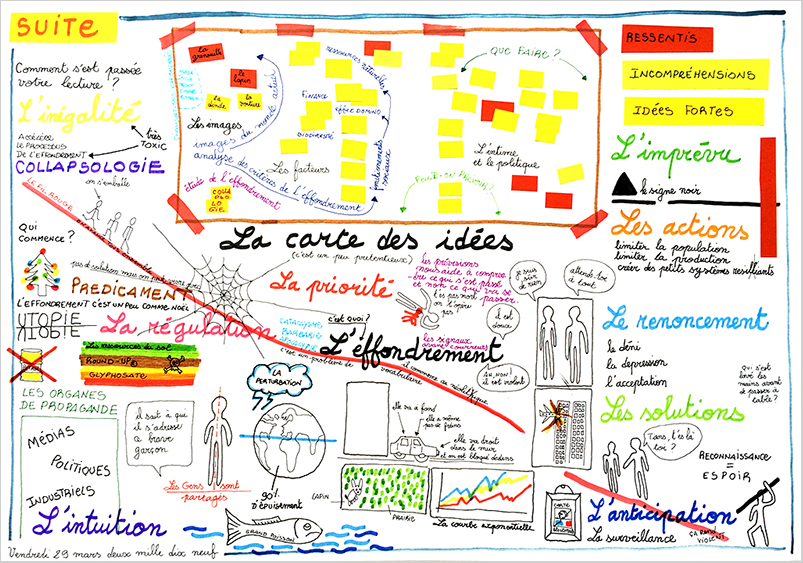 SUITE
Comment s'est passée
votre lecture ?
L'inégalité
très
TOXIC
Accélère
le processus
De l'effondrement
COLLAPSOLOGIE
on s'emballe
LE FIL ROUGE
la grenouille
le lapin
la dinde
la voiture
Les images
images du monde actuel
analyse des critères de l'effondrement
étude de l'effondrement
COLLA
PSO
LO
GIE
ressources naturelles
Finance
effet domino
Biodiversité
Les facteurs
QUE FAIRE ?
L'intime
et le politique
RESSENTIS
INCOMPRÉHENSIONS
IDÉES FORTES
L'imprévu
le signe noir
Les actions
limiter la population
limiter la production
créer des petits systèmes résilients
La carte des idées
(c'est un peu prétentieux)
Qui
commence ?
PREDICAMENT
L'EFFONDREMENT C'EST UN PEU COMME NOËL
UTOPIE
UTOPIE
La régulation
La priorité
les prévisions
nous aide à compren
-dre ce qui s'est passé
et non ce qui va se
passer.
les signaux
avant-coureurs
je suis
sûr
de rien
attends-toi
à tout
il est
doux
AH, NON !
il est violent
c'est quoi ?
L'éffondrement
c'est un problème de
vocabulaire
Le renoncement
le déni
la dépression
l'acceptation
qui s'est
lavé les
mains avant
de passer à
table ?
Les ressources du sol
ROUND-UP
GLYPHOSATE
LES ORGANES
DE PROPAGANDE
MÉDIAS
POLITIQUES
INDUSTRIELS
L'intuition
il sait à qui
il s'adresse
ce brave
garçon
Les Gens sont
partagés
LA
PERTURBATION
90%
D'ÉPUISEMENT
GRAND POISSON
elle va à fond
elle a même
pas de freins
elle va droit
dans le mur
et on est bloqué dedans
LAPIN
PRAIRIE
La courbe exponentielle
Les solutions
Tiens, t'es là
toi ?
RECONNAISSANCE
=
ESPOIR
CARTE
L'anticipation
La surveillance
ÇA REND
VIOLENT
Vendredi 29 mars deux mille dix neuf